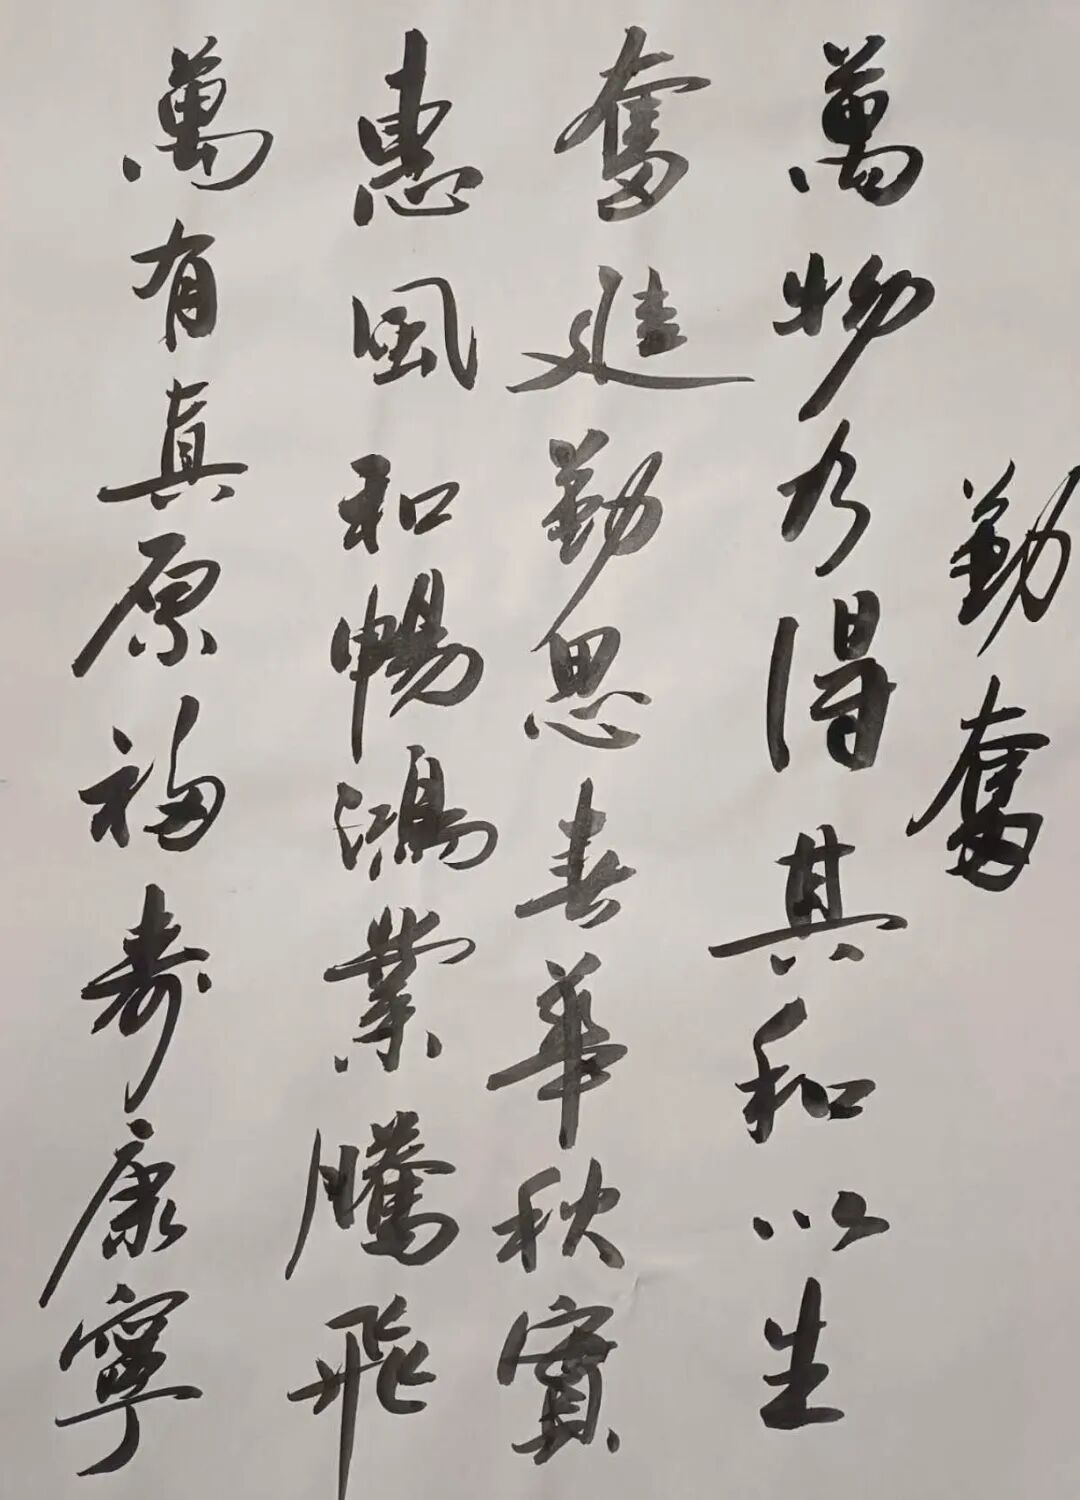 勤奮
萬物乃得其和以生
奮進勤思春華秋實
惠風和暢鴻業騰飛
萬有真原福壽康寧